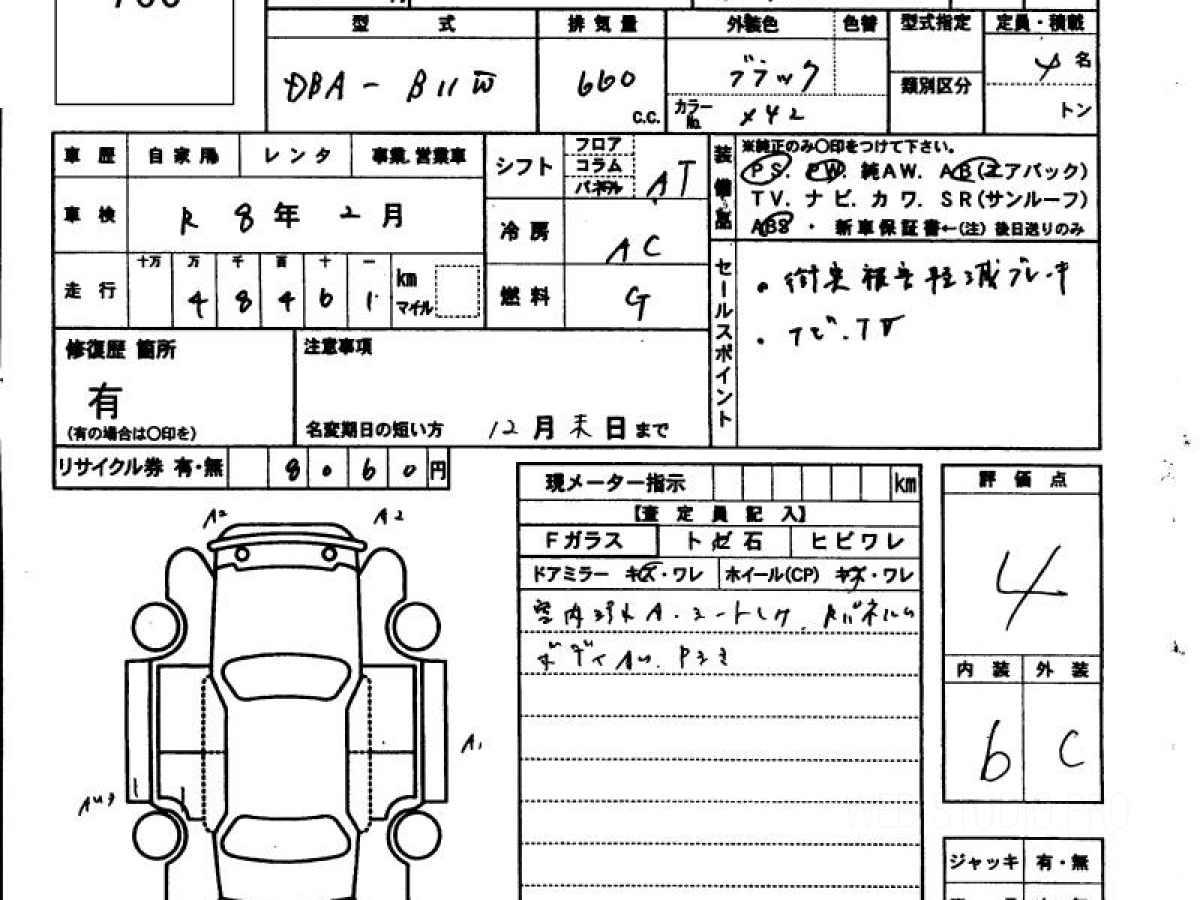 型 式 排気量 外装色 色替 型式指定 定員・積載
DBA - B11W 660 C.C. ブラック 類別区分 名
カラーNo. X42 トン
車歴 自家用 レンタ 事業.営業車 シフト フロア コラム パネル AT
装備品 ※純正のみ〇印をつけて下さい。
PS. PW. 純AW. AB(エアバック)
TV. ナビ. カワ. SR(サンルーフ)
ABS ・ 新車保証書←(注) 後日送りのみ
車検 R 8年 2月 冷房 AC
走行 十万 万 千 百 十 一 km マイル
4 8 4 6 1 燃料 G
セールスポイント ・衝突被害軽減ブレーキ
・ナビ.TV
修復歴 箇所 注意事項
有
(有の場合は〇印を) 名変期日の短い方 12月末日まで
リサイクル券 有・無 8060円
現メーター指示 km 評価点
【査定員記入】
Fガラス トビ石 ヒビワレ
ドアミラー キズ・ワレ ホイール(CP) キズ・ワレ
4
A2 A2
内装 外装
b C
A1
ジャッキ 有・無
WEB-STUDIO.PRO